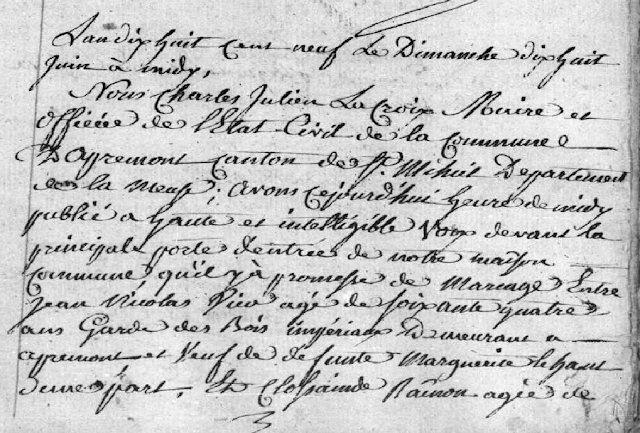 L'an dix huit cent neuf Le Dimanche dix huit
juin à midy,
Nous Charles Julien La Croix Maire et
officiée de l'Etat Civil de la Commune
D'apremont Canton de St. Mihiel Departement
de la Meuse; avons cejourd'hui heure de midy
publié a haute et intelligible Voix devant la
principale porte d'entrée de notre maison
Commune, qu'il y à promesse de Mariage Entre
Jean Nicolas agé de soixante quatre
ans Garde des Bois impériaux Demeurant a
apremont et Veuf de defunte Marguerite
d'une part, Et agée de